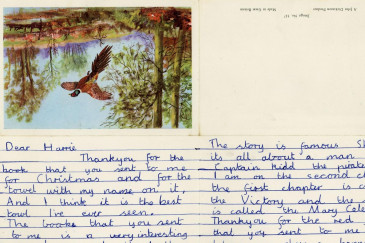 A John Dickinson Product
Made in Great Britain
Dear Harris
Thankyou for the
book that you sent to me
for Christmas and for the
towl with my name on it,
And I think it is the best
towl I've ever seen.
The book that you sent
to me is a very interesting
The story is famous
its all about a man
Captain Kidd the pirate
I am on the second
the first chapter is
the Victory and the
is called the Mary
Thankyou for the red
that you sent to me